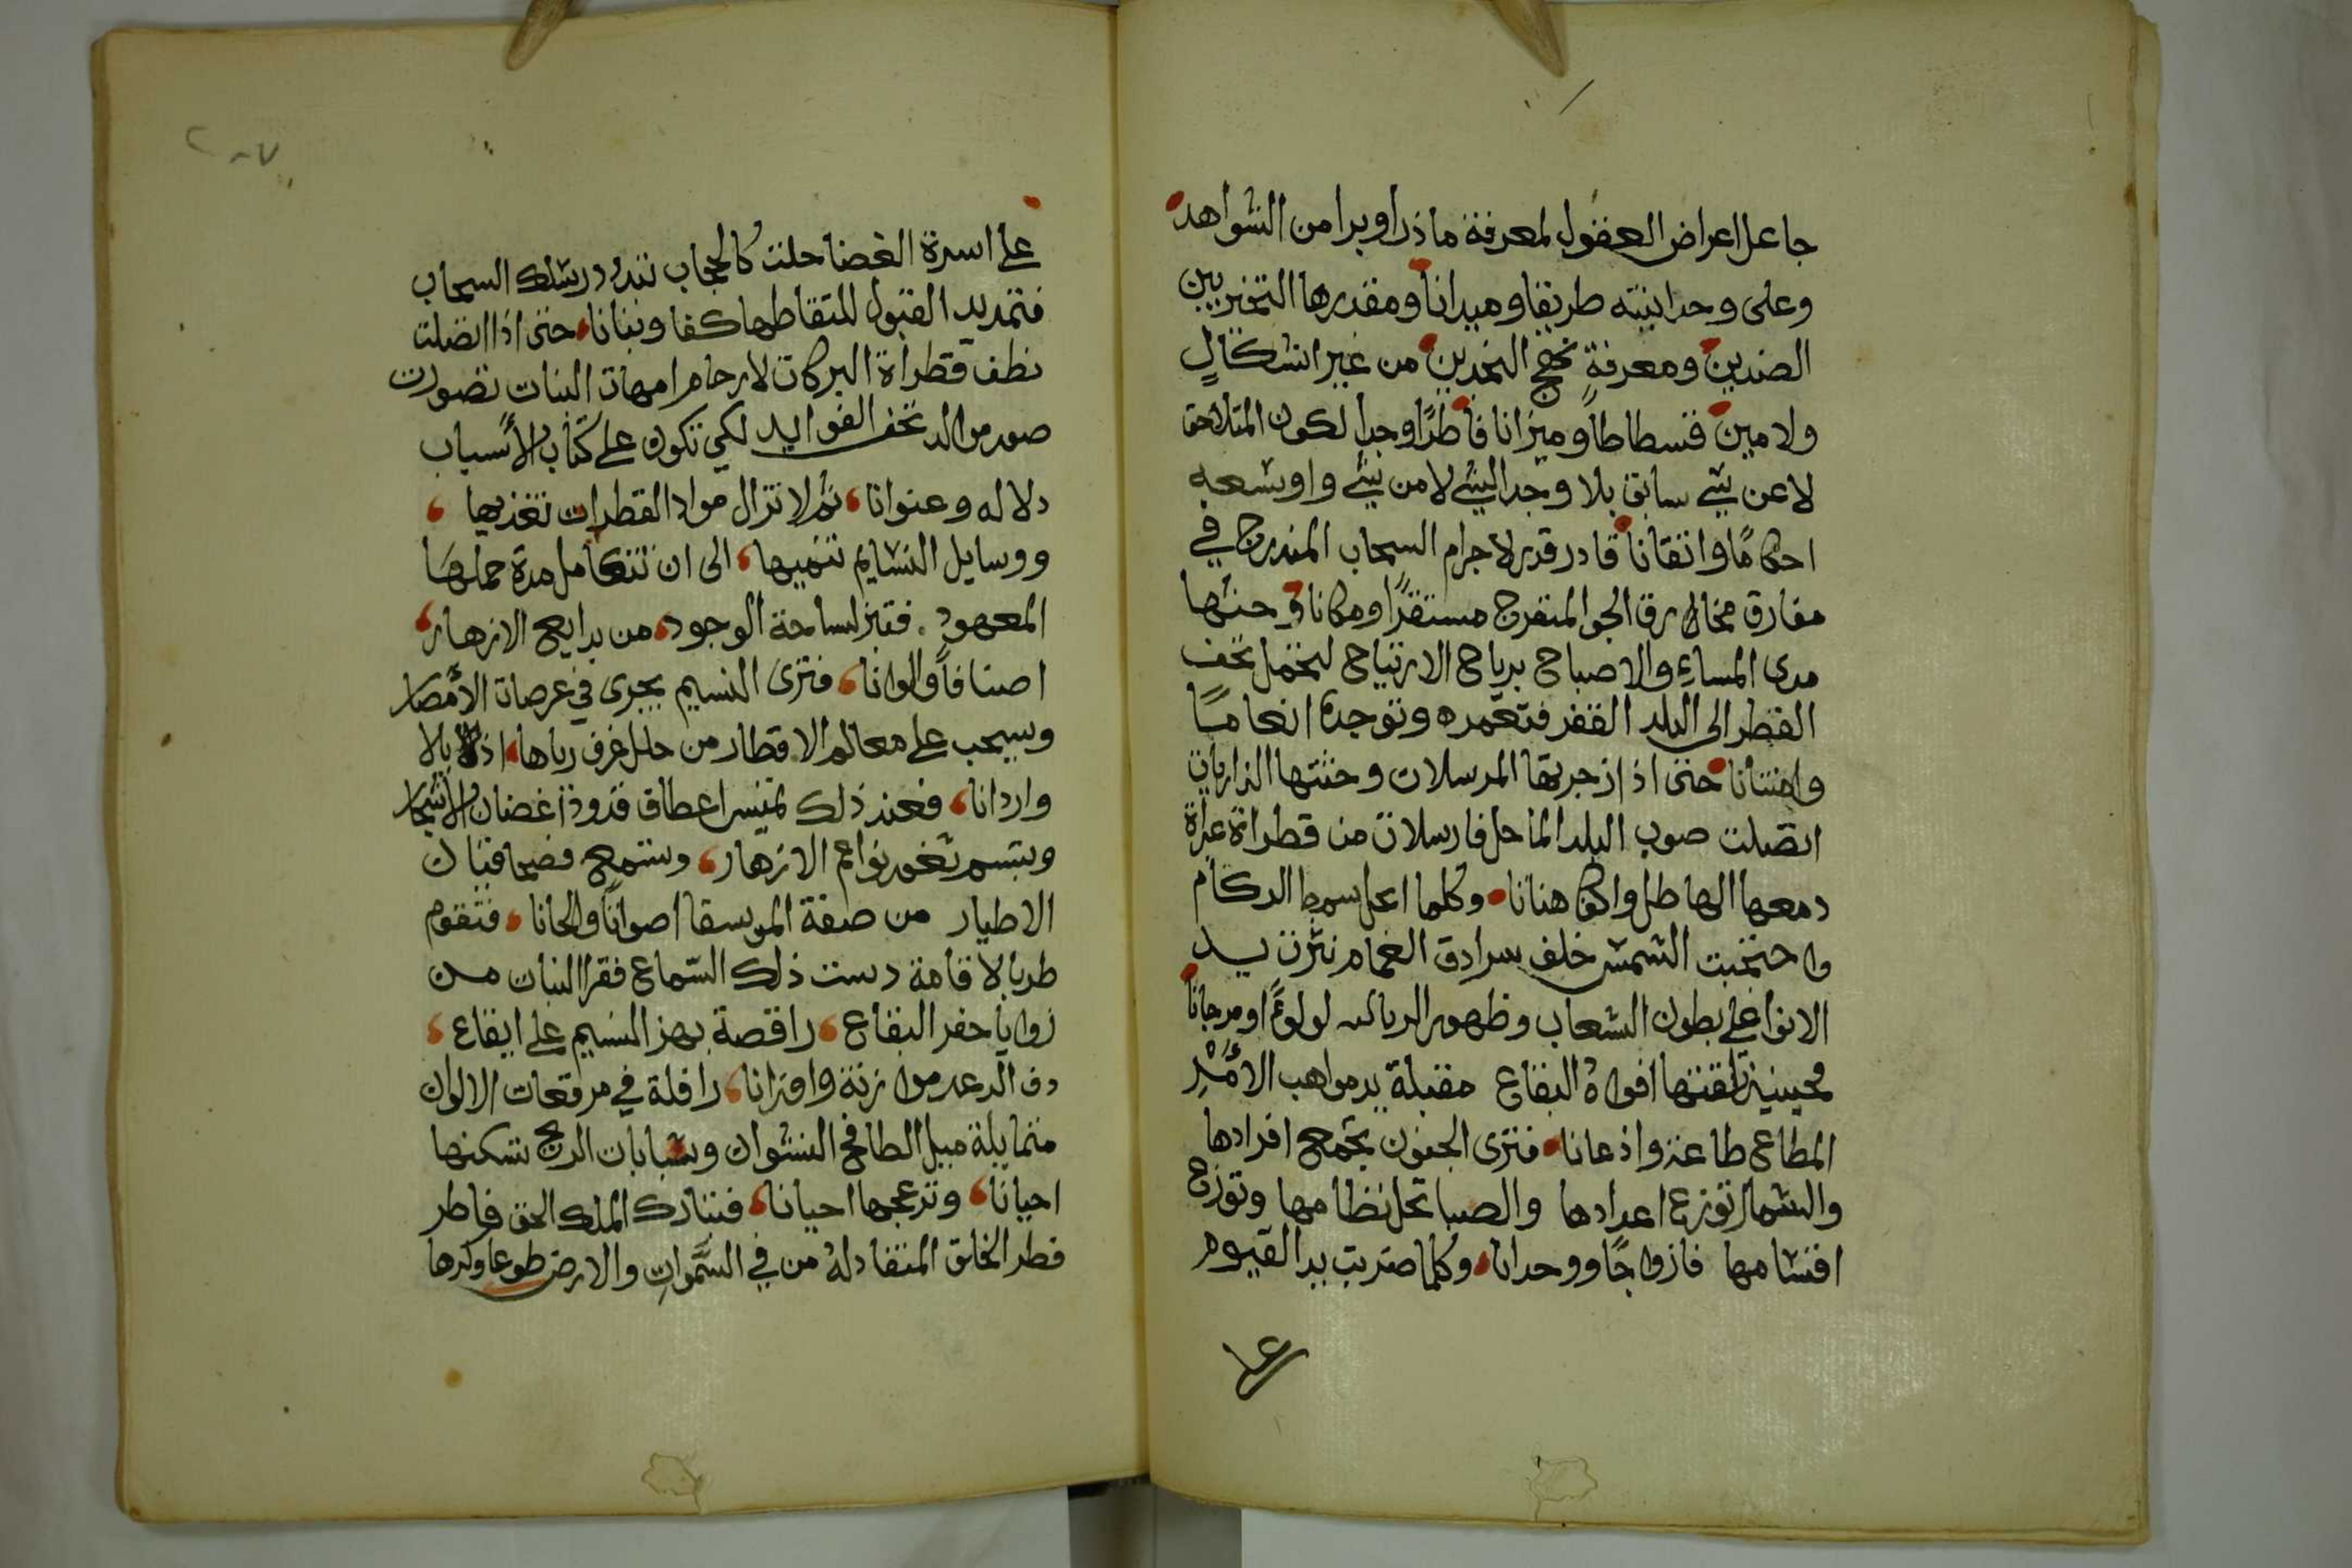 جاعل اعراض العقول لمعرفة ماذرا وبرا من الشواهد
وعلى وحدانيته طريقا وميدانا ومقدرها التخيربين
الضدين ومعرفةِ نهج النجدين من غير اشكالٍ
ولامين قسطاطاً وميزانا فاطرًا وجدا لكون المتلاحق
لاعن شي سابق بلا وجدا لشي لا من شي واوسعه
احكامًا واتقانا قادر قدر لاجرام السحاب المندرج في
مفارق مخال برق الجو المتفرج مستقرًا ومكانا وحثها
مدى المساءِ والاصباح برياح الارتياح لتحمل تحف
القطر الى البلد القفر فتغمره وتوجده انعاما
وامتنانا حتى اذا زجرتها المرسلات وحثتها الذاريات
اتصلت صوب البلد الماحل فارسلات من قطراة عبراة
دمعها الهاطل واكفا هتانا وكلما اعل سمط الركام
واحتجبت الشمس خلف سرادق الغمام نثرت يد
الانوا على بطون الشعاب وظهور لولوءًا ومرجانا
فحينيذ افواهُ البقاع مقبلة يد مواهب الامر
المطاع طاعة واذعانا فترى الجنوب تجمع افرادها
والشمال توزع اعدادها والصبا تحل نظامها وتوزج
اقسامها فازواجًا ووحدانا وكلما ضربت يد القيوم
على
على اسرة الفضا حلت كالحجاب تبدد درسلك السحاب
فتمد يد القبول للتقاطها كفا وبنانا حتى اذا اتصلت
نطف قطراة البركات لارحام امهات النبات تصورت
صور مواليد تحف الفوايد لكي تكون على كتاب الأسباب
دلاله وعنوانا ثم لا تزال مواد القطرات تغذيها
ووسايل النسايم تنميها الى ان تتكامل مدة حملها
المعهود فتبرز لساحة الوجود من بدايع الازهار
اصنافاً والوانا فترى النسيم يجرى في عرصات الأمصار
ويسحب على معالم الاقطار من حلل عرف رباها اذيالا
واردانا فعند ذلك تميس اعطاف قدود أغصان الأشجار
ويتسم ثغور نواعم الازهار وتستمع فصحا قينات
الاطيار من صفة الموسقا اصواتاً والحانا فتقوم
طربا لاقامة دست ذلك السّماع فقرا النبات من
زوايا حفر البقاع راقصة بهز النسيم على ايقاع
دف الرعد موازنة واوزانا رافلة في مرقعات الالوان
متمايلة ميل الطافح النشوان وشبابات الريح تسكنها
احيانا وتزعجها احيانا فتبارك الملك الحق فاطر
فطر الخلق المنقاد لهُ من في السَّمواتِ والارض طوعا وكرها